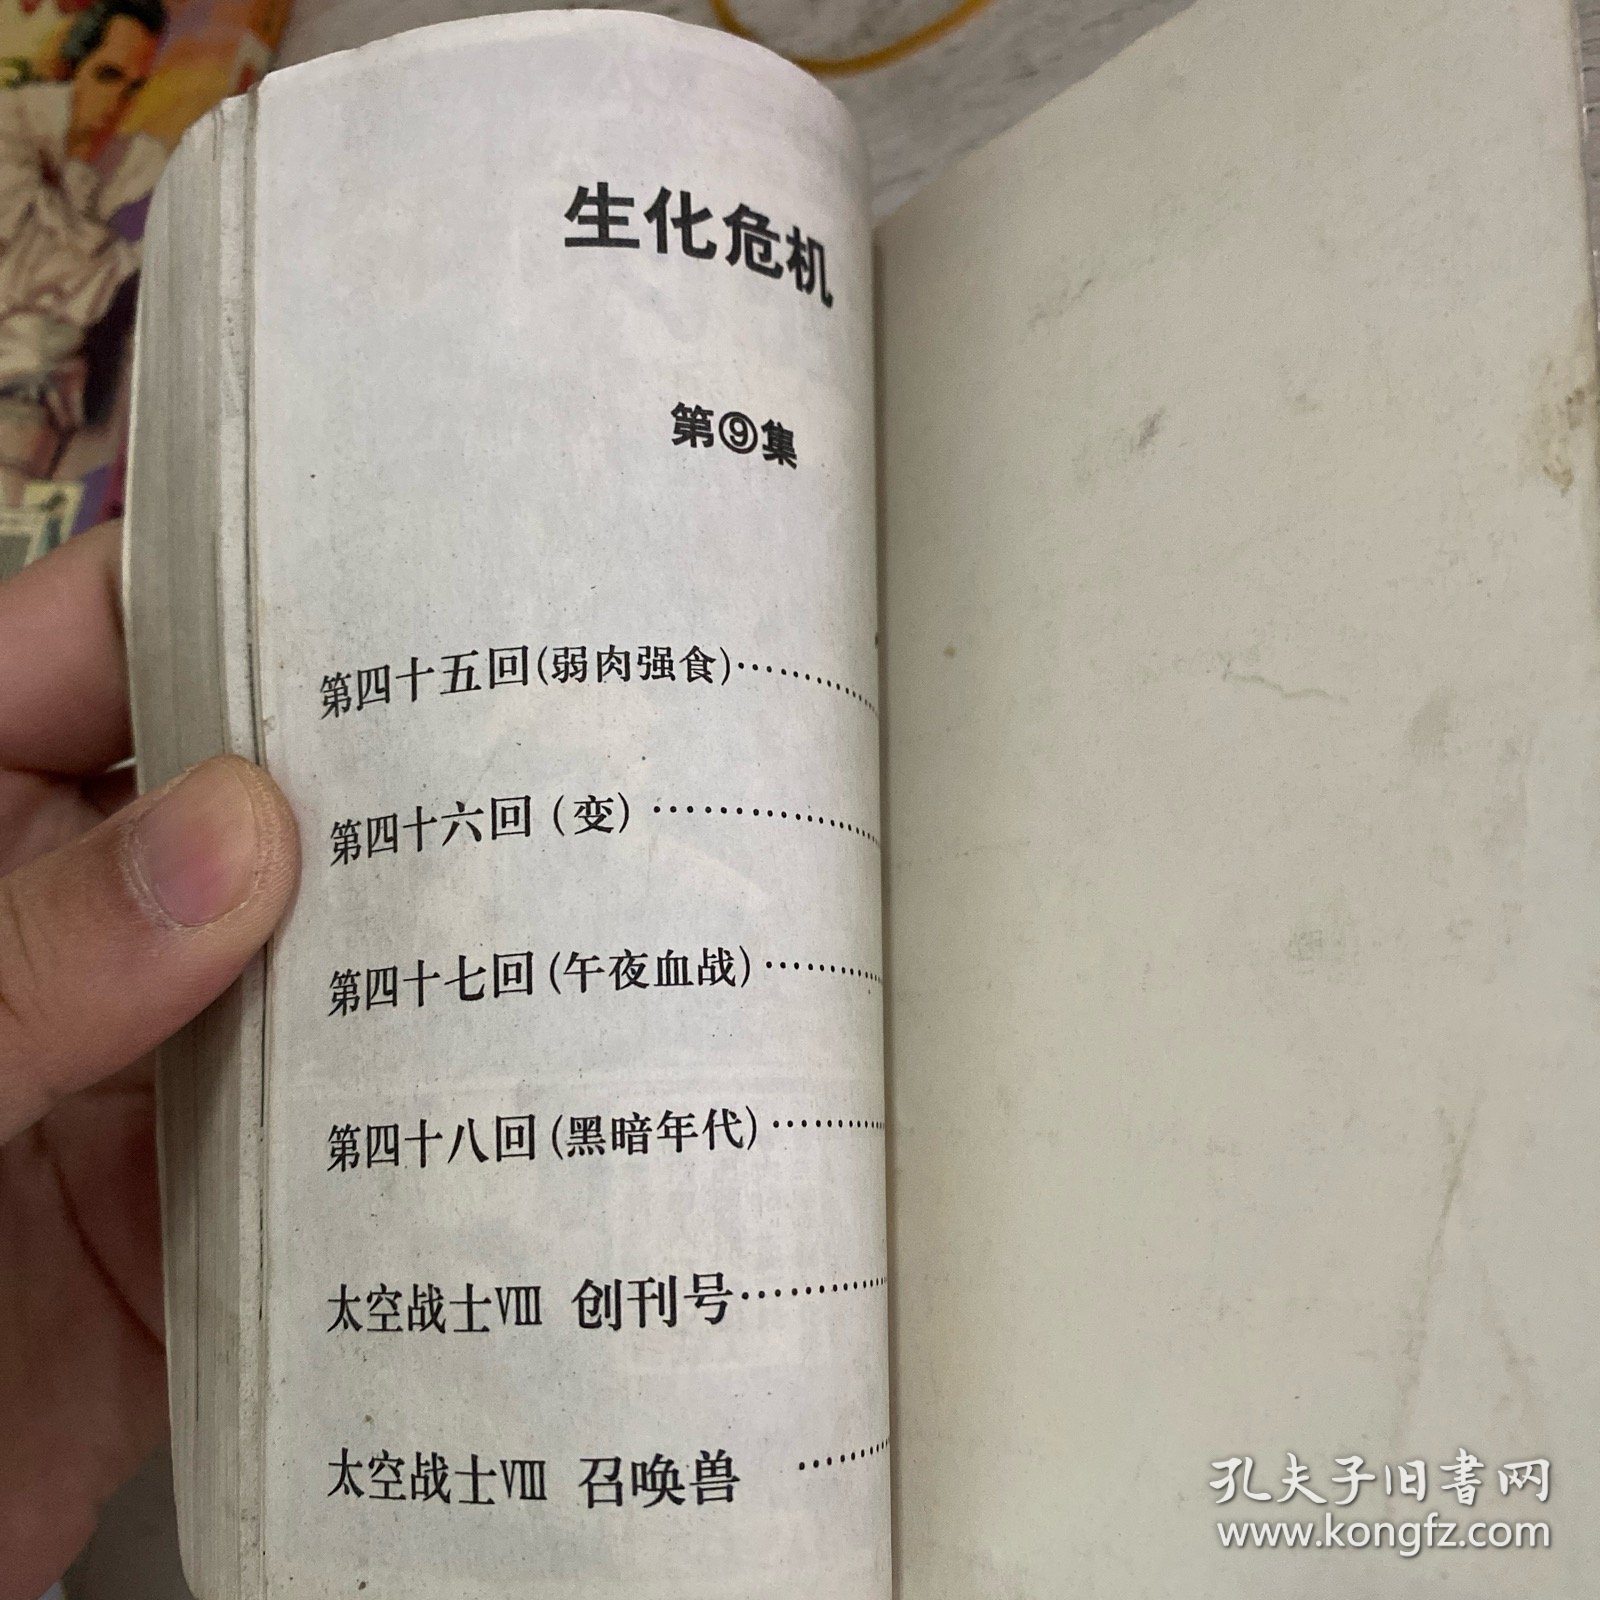 生化危机
第⑨集
第四十五回(弱肉强食)
第四十六回(变)
第四十七回(午夜血战)
第四十八回(黑暗年代)
太空战士Ⅷ 创刊号
太空战士Ⅷ 召唤兽
孔夫子旧书网
www.kongfz.com